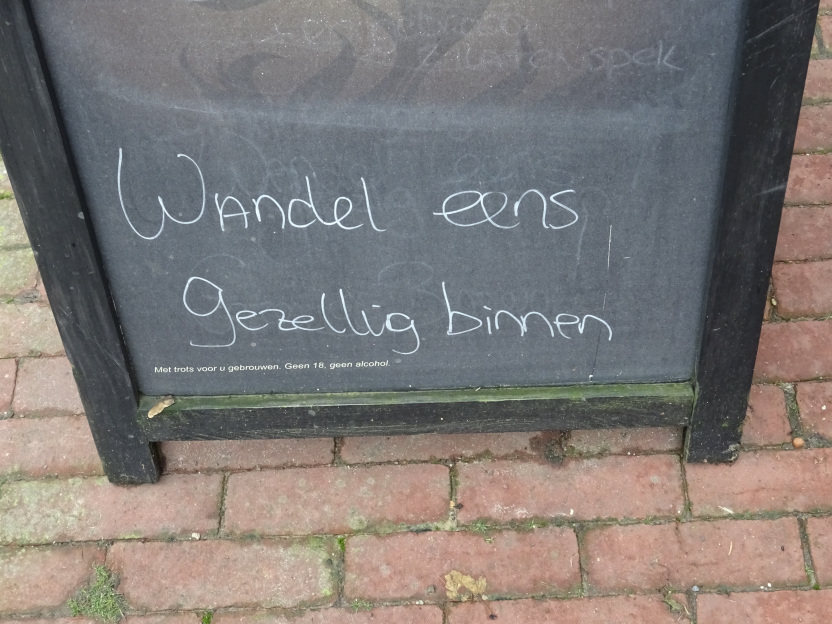 spek
Wandel eens
gezellig binnen
Met trots voor u gebrouwen. Geen 18, geen alcohol.